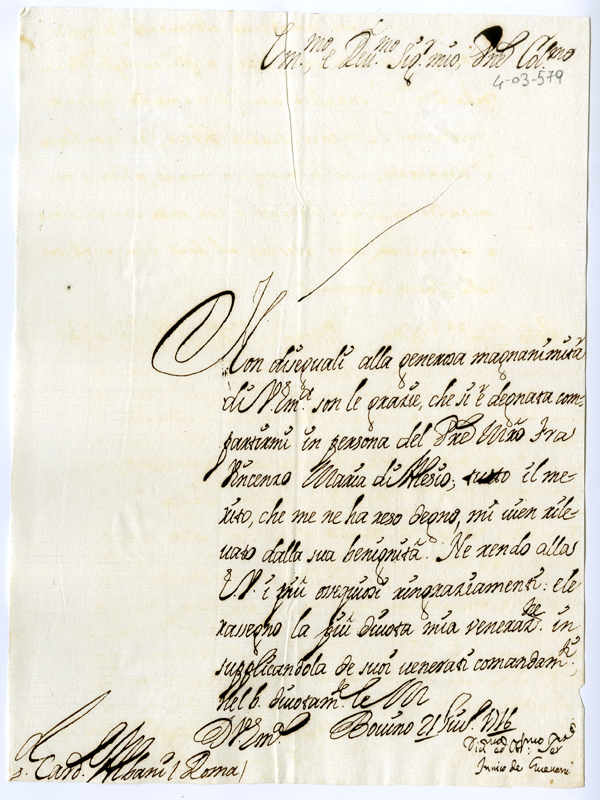 Em.mo, e Reu.mo Sig.r mio, Pne Col.mo
4-03-579
Non diseguali alla generosa magnanimità
di V. Em.za son le grazie, che si è degnata com-
partirmi in persona del Pre Mro Fra
Vincenzo Maria di Alesio; tutto il me-
rito, che me ne ha reso degno, mi uien rile-
uato dalla sua benignità. Ne rendo alla
E.V. i più ossequiosi ringraziamenti: e le
rassegno la più diuota mia veneraz.ne in
supplicandola de suoi uenerati comandam.ti,
diuotam.te le
D. V. Em.za Bouino 21 1716
Card. Albani / Roma /
Innico de Gueuara